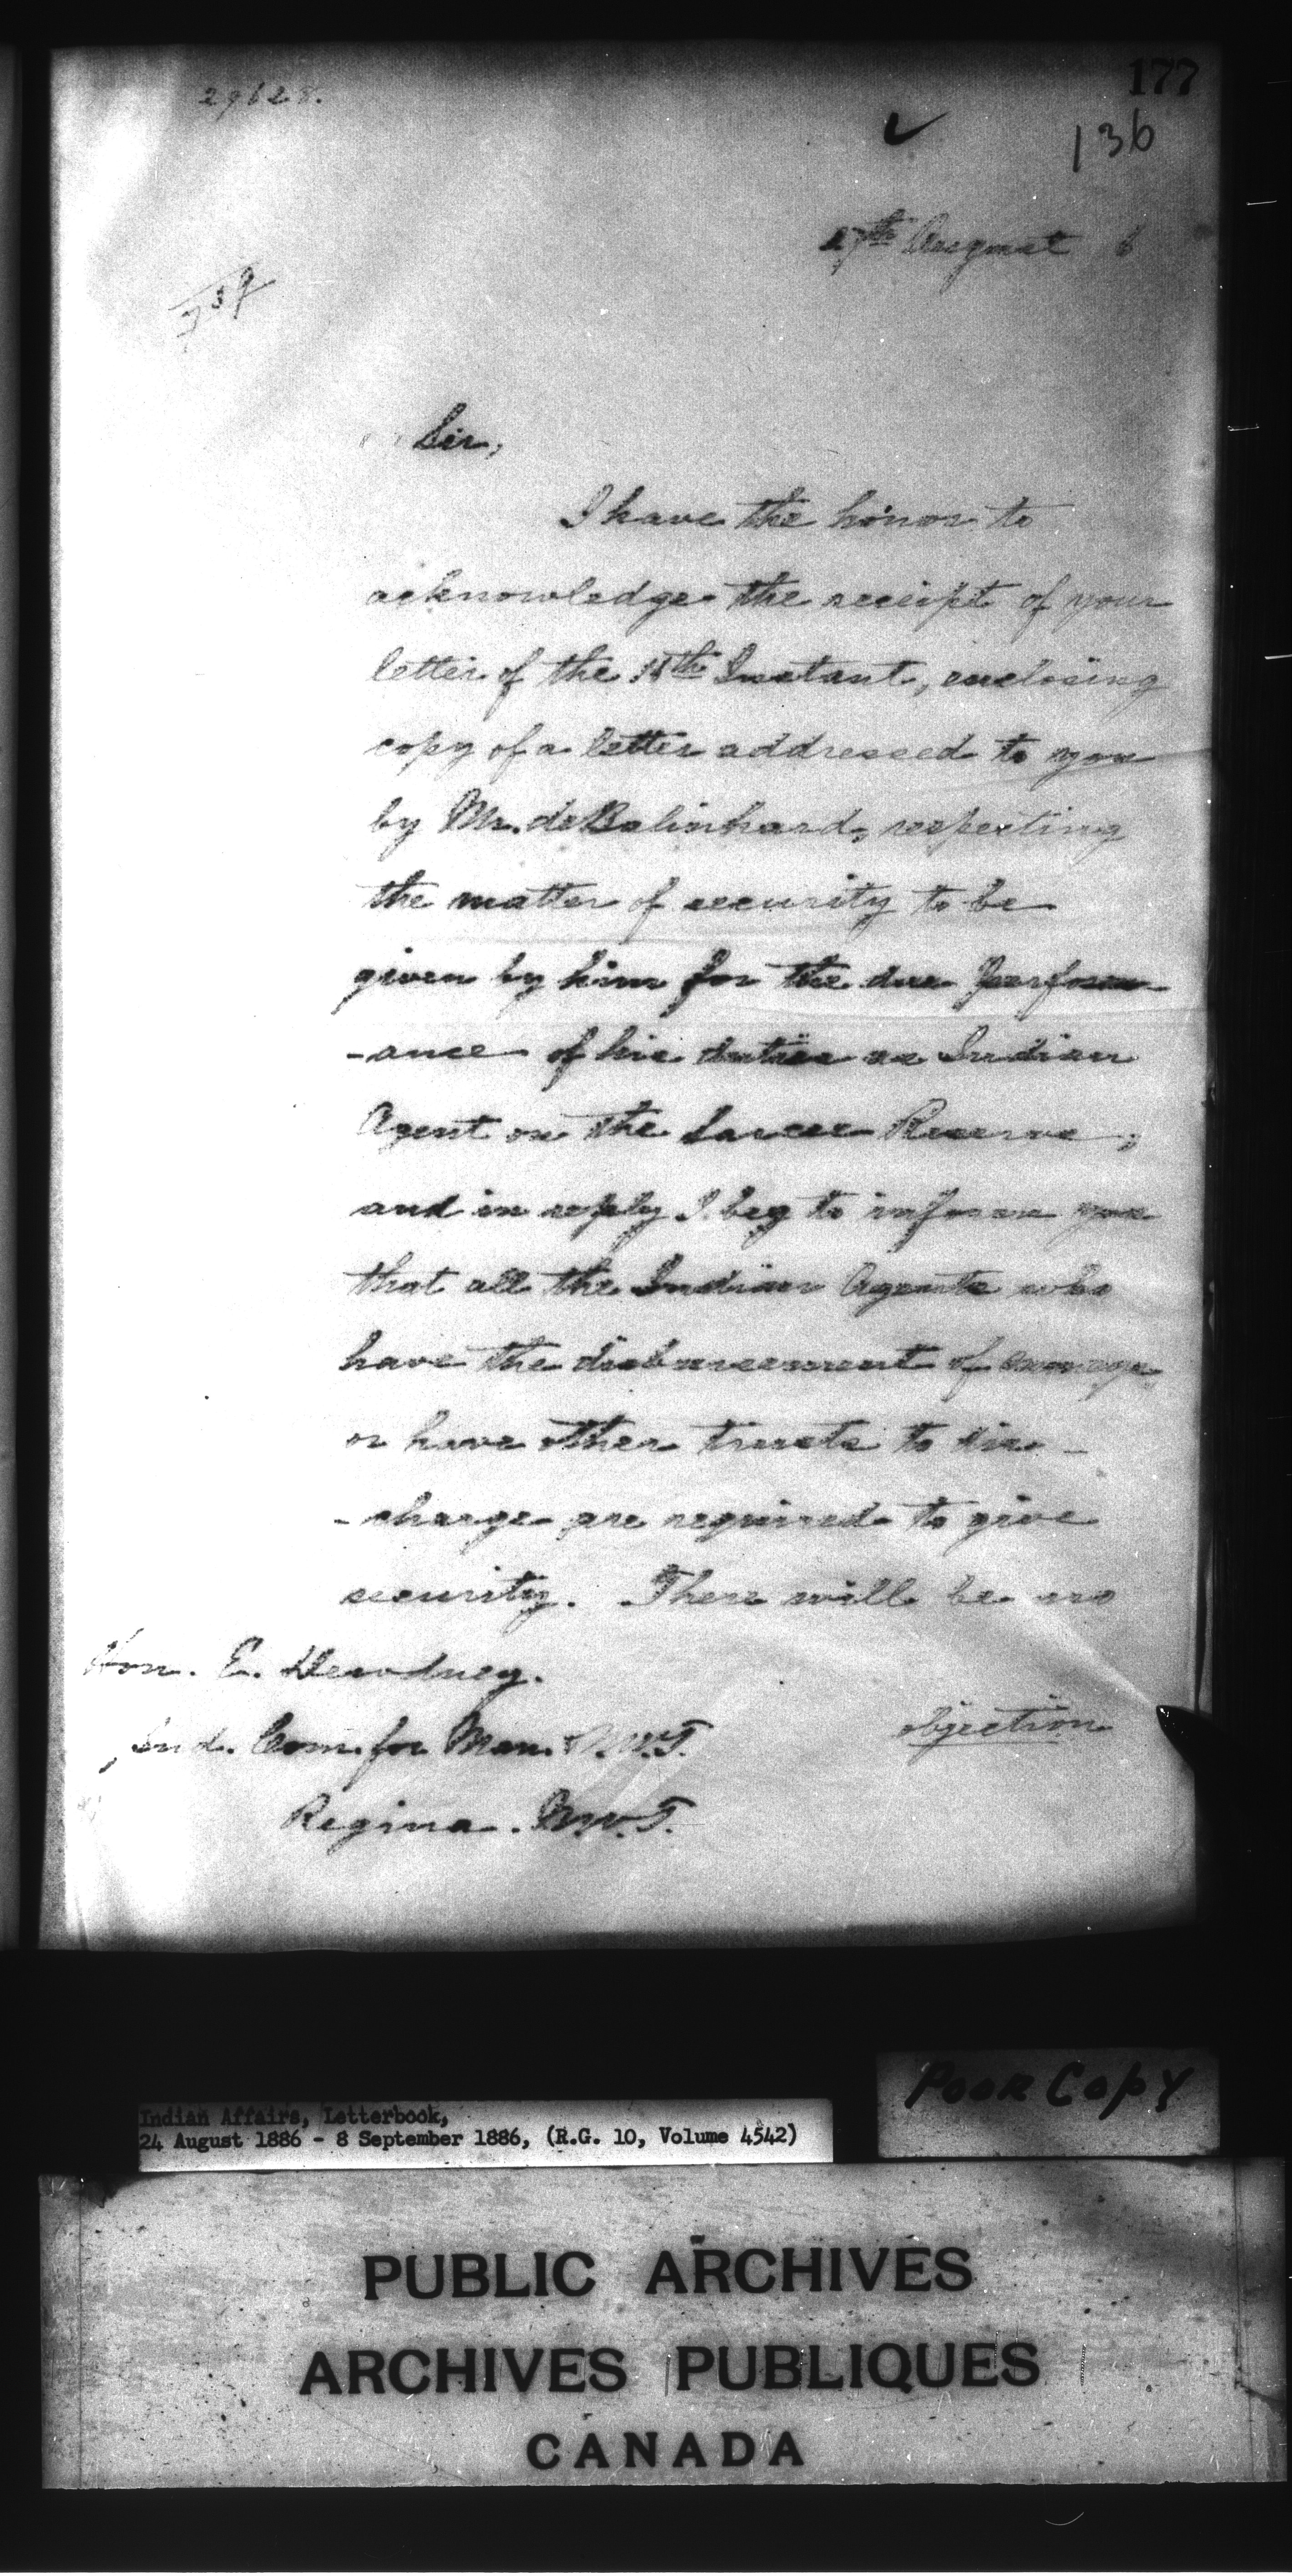 29628.
177
136
27th August 6
Sir,
I have the honor to
acknowledge the receipt of your
letter of the 18th Instant, enclosing
copy of a letter addressed to you
by Mr. deBalinhard, respecting
the matter of security to be
given by him for the due Perform-
-ance of his duties as Indian
Agent on the Sarcee Reserve,
and in reply I beg to inform you
that all the Indian Agents who
have the disbursement of
or have other trusts to dis-
-charge are required to give
security. There will be no
Hon. E. Dewdney.
objection
Ind. Com. for Man. & N.W.T.
Regina. N.W.T.
POOR COPY
Indian Affairs, Letterbook,
24 August 1886 - 8 September 1886, (R.G. 10, Volume 4542)
PUBLIC ARCHIVES
ARCHIVES PUBLIQUES
CANADA